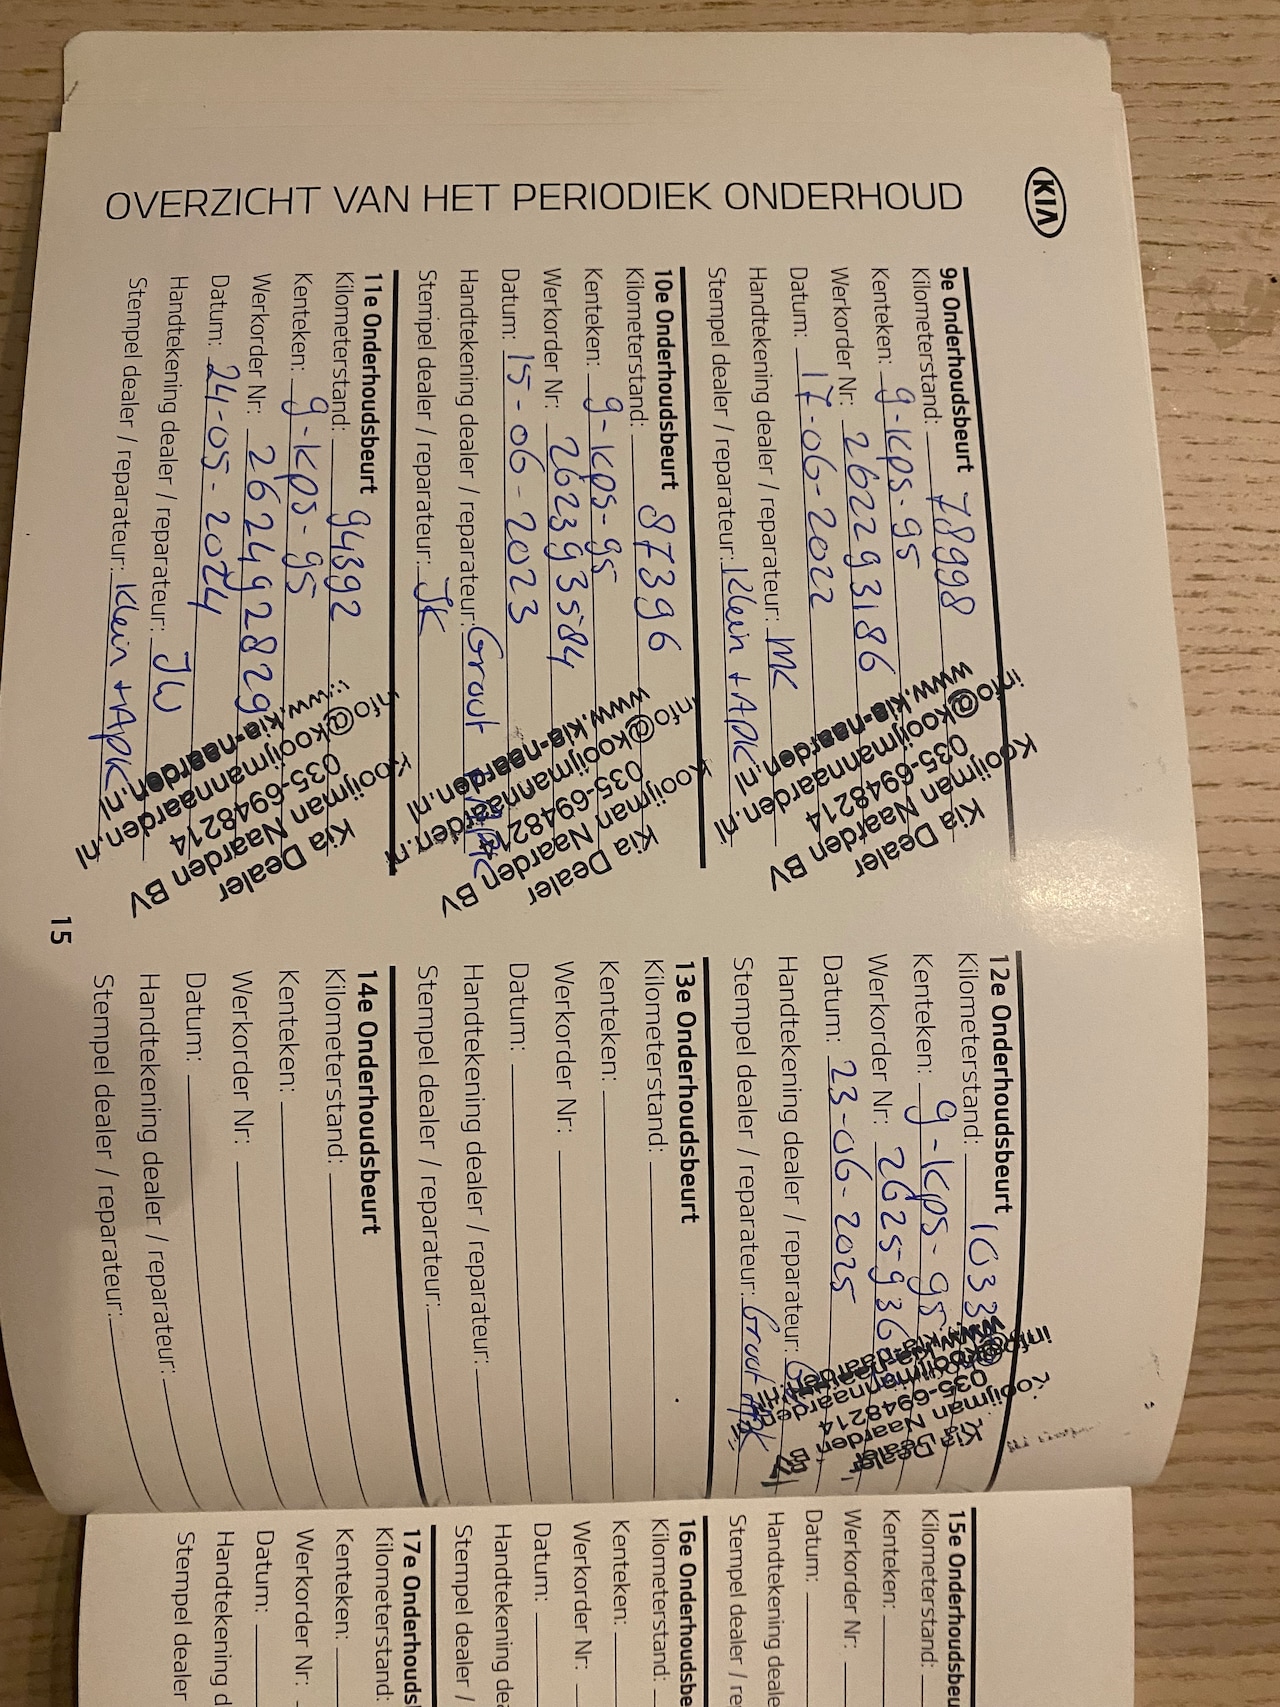 KIA
OVERZICHT VAN HET PERIODIEK ONDERHOUD
9e Onderhoudsbeurt
Kilometerstand: 78998
Kenteken: g-kps-95
Werkorder Nr: 262293186
Datum: 17-06-2022
Handtekening dealer / reparateur: MK
Stempel dealer / reparateur: Klein + APK
Kia Dealer
Kooijman Naarden BV
035-6948214
info@kooijmannaarden.nl
www.kia-naarden.nl
10e Onderhoudsbeurt
Kilometerstand: 87396
Kenteken: g-kps-95
Werkorder Nr: 262393584
Datum: 15-06-2023
Handtekening dealer / reparateur: Groot
Stempel dealer / reparateur: JK
Kia Dealer
Kooijman Naarden BV
035-6948214
info@kooijmannaarden.nl
www.kia-naarden.nl
11e Onderhoudsbeurt
Kilometerstand: 94392
Kenteken: g-kps-95
Werkorder Nr: 262492829
Datum: 24-05-2024
Handtekening dealer / reparateur: JW
Stempel dealer / reparateur: Klein + APK
Kia Dealer
Kooijman Naarden BV
035-6948214
info@kooijmannaarden.nl
www.kia-naarden.nl
12e Onderhoudsbeurt
Kilometerstand:
Kenteken: g-kps-95
Werkorder Nr:
Datum: 23-06-2025
Handtekening dealer / reparateur:
Stempel dealer / reparateur: Groot APK
Kia Dealer
Kooijman Naarden
035-6948214
13e Onderhoudsbeurt
Kilometerstand:
Kenteken:
Werkorder Nr:
Datum:
Handtekening dealer / reparateur:
Stempel dealer / reparateur:
14e Onderhoudsbeurt
Kilometerstand:
Kenteken:
Werkorder Nr:
Datum:
Handtekening dealer / reparateur:
Stempel dealer / reparateur:
15
15e Onderhoudsbeu
Kilometerstand:
Kenteken:
Werkorder Nr:
Datum:
Handtekening deale
Stempel dealer / re
16e Onderhoudsbe
Kilometerstand:
Kenteken:
Werkorder Nr:
Datum:
Handtekening de
Stempel dealer /
17e Onderhouds
Kilometerstand:
Kenteken:
Werkorder Nr:
Datum:
Handtekening d
Stempel dealer